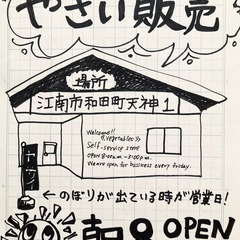 やさい販売
場所
江南市和田町天神1
Welcome!!
《vegetables》
Self-service store
OPEN 8:00a.m.~3:00p.m.
We are open for business every friday.
←のぼりが出ている時が営業日!
OPEN